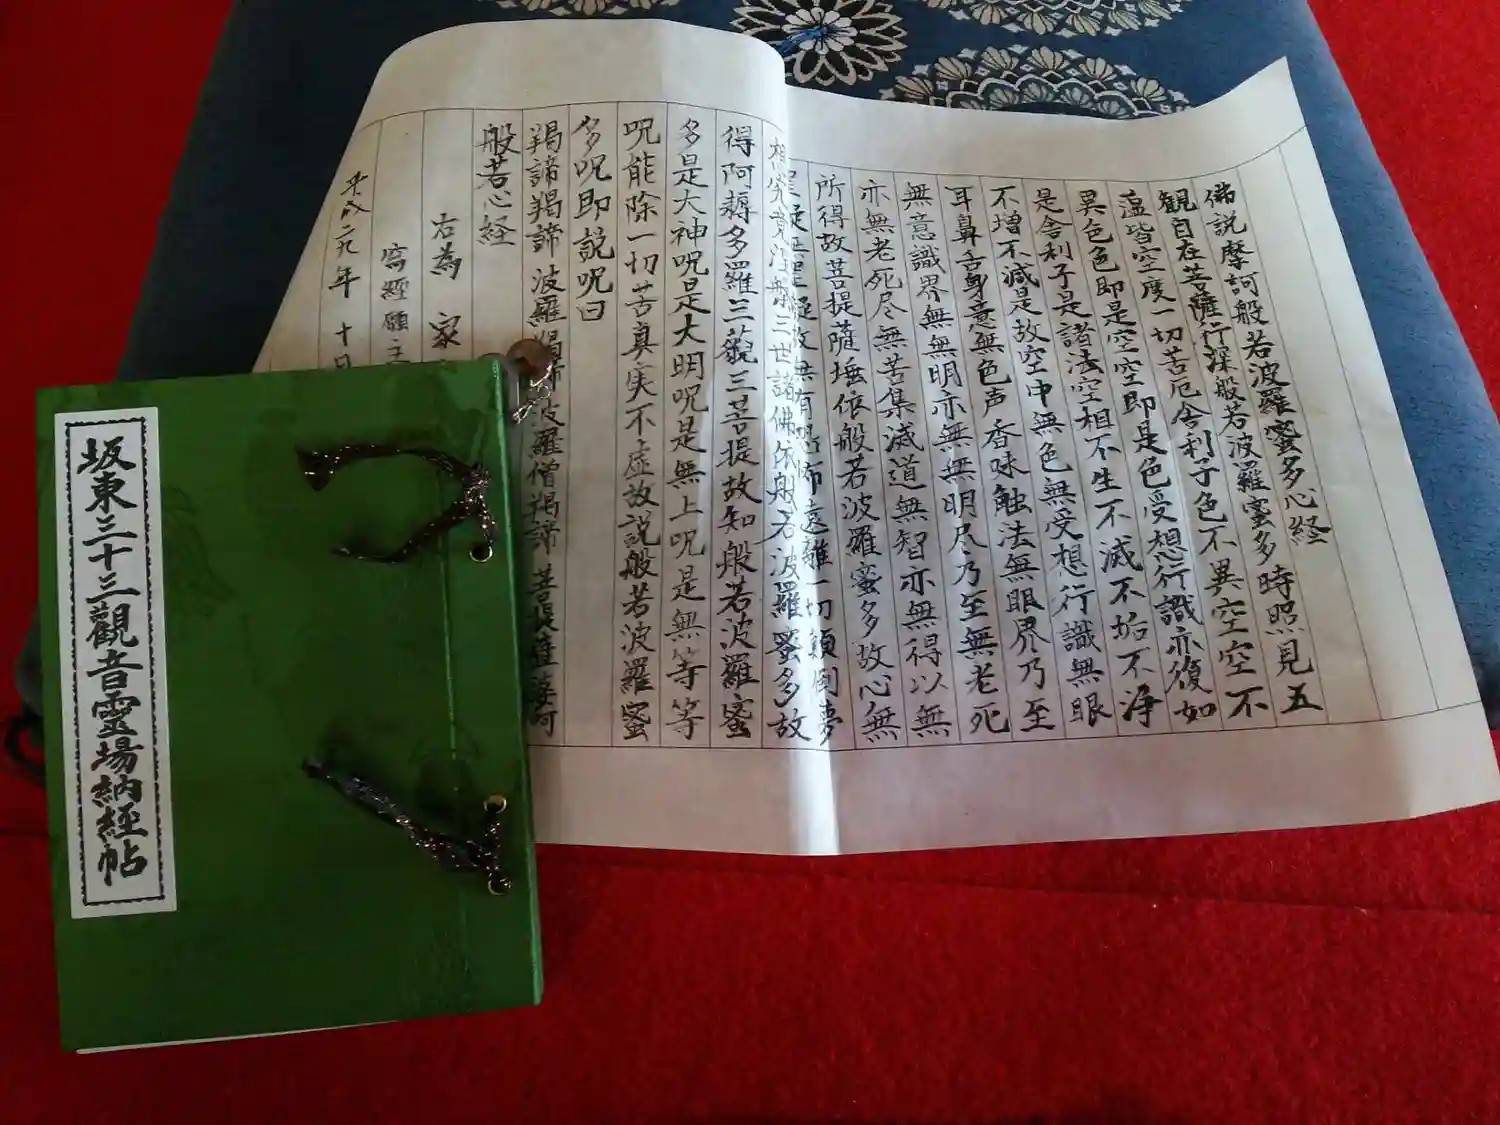 佛説摩訶般若波羅蜜多心経
観自在菩薩行深般若波羅蜜多時照見五
蕰皆空度一切苦厄舎利子色不異空空不
異色色即是空空即是色受想行識亦復如
是舎利子是諸法空相不生不滅不垢不浄
不増不減是故空中無色無受想行識無眼
耳鼻舌身意無色声香味触法無眼界乃至
無意識界無無明亦無無明尽乃至無老死
亦無老死尽無苦集滅道無智亦無得以無
所得故菩提薩埵依般若波羅蜜多故心無
罣礙無罣礙故無有恐怖遠離一切顛倒夢
想究竟涅槃三世諸佛依般若波羅蜜多故
得阿耨多羅三藐三菩提故知般若波羅蜜
多是大神呪是大明呪是無上呪是無等等
呪能除一切苦真実不虚故説般若波羅蜜
多呪即説呪曰
羯諦羯諦 波羅羯諦 波羅僧羯諦 菩提薩婆訶
般若心経
右為 家
写経願主
平成二九年 十日
坂東三十三觀音靈場納経帖